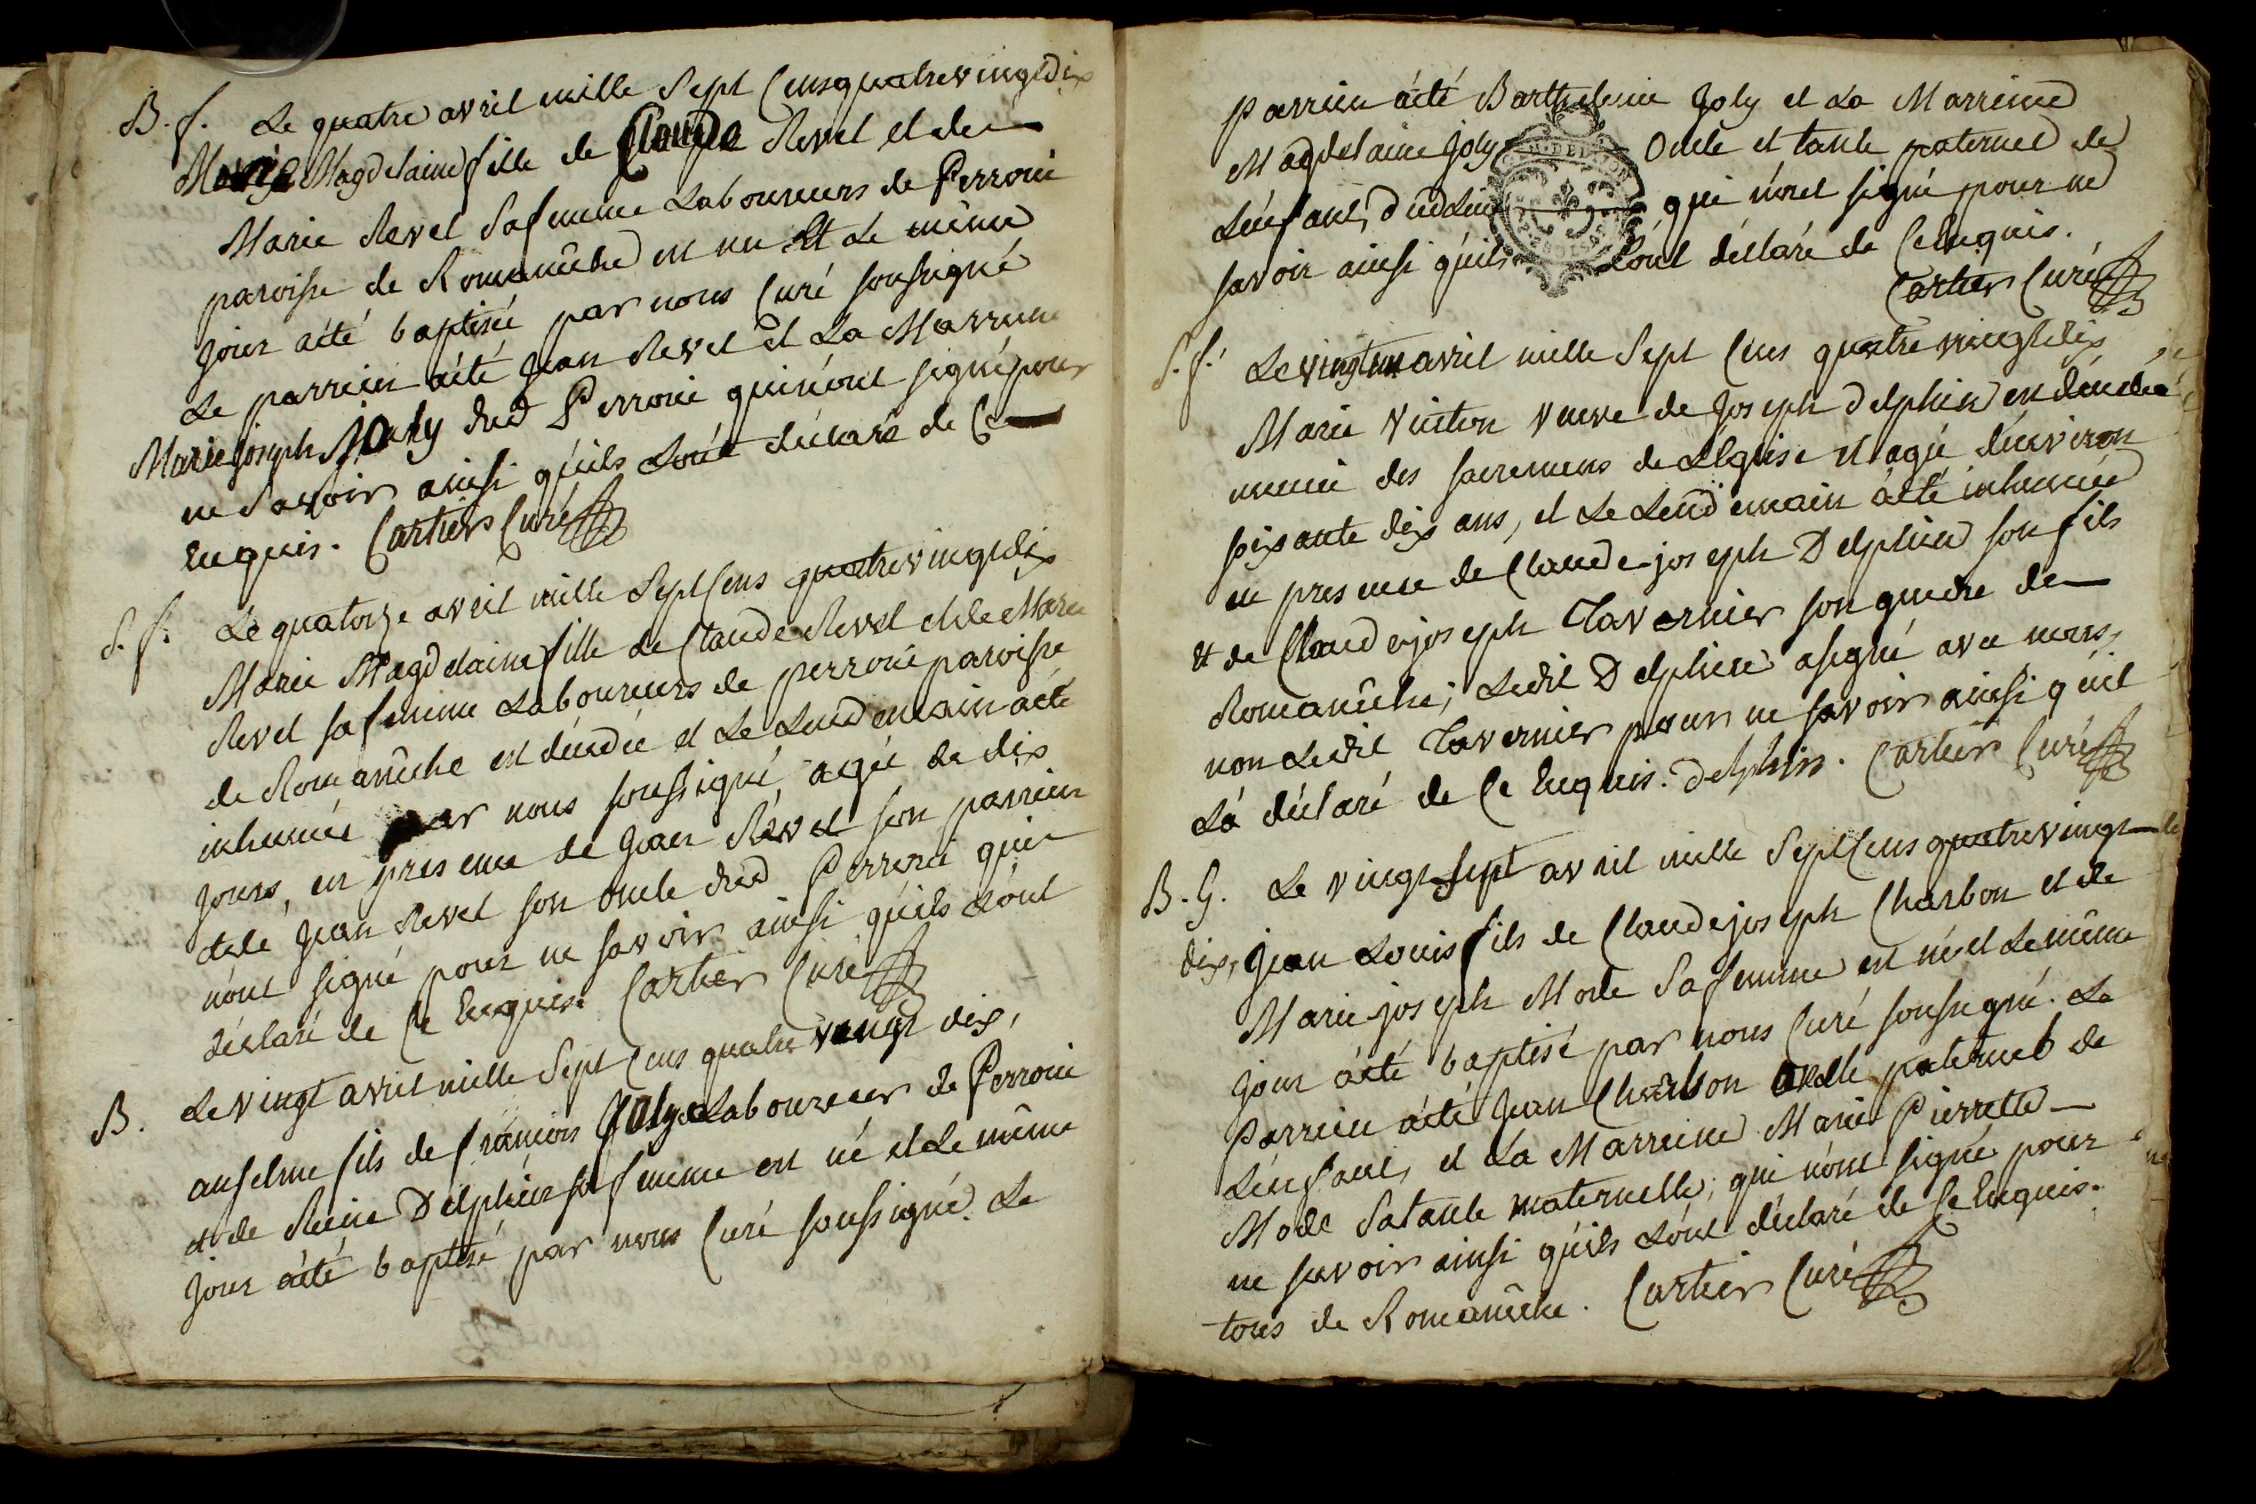 B. f. Le quatre avril mille Sept Cens quatrevingtdix
Marie Magdelaine fille de Claude Revel et de
Marie Revel Sa femme Laboureurs de Perroüé
paroisse de Romanêche est née Et Le même
jour a été baptisée par nous Curé soussigné
Le parrien a été Jean Revel et La Marrene
Marie joseph Joly dud Perroüé qui n'ont signé pour
ne Savoir ainsi qu'ils L'ont déclaré de Ce
Enquis. Cartier Curé
S. f. Le quatorze avril mille Sept Cens quatrevingtdix
Marie Magdelaine fille de Claude Revel et de Marie
Revel sa femme Laboureurs de perroüé paroisse
de Romanêche est décédée et Le Lendemain a été
inhumée par nous soussigné, agée de dix
jours, en presence de Jean Revel son parrien
et de Jean Revel son Oncle dud Perroüé qui
n'ont signé pour ne savoir ainsi qu'ils L'ont
déclaré de Ce Enquis. Cartier Curé
B. Le vingt avril mille Sept Cens quatre vingt dix,
anselme fils de françois Joly Laboureur de Perroüé
et de Reine Delphien sa femme est né et Le même
jour a été baptisé par nous Curé soussigné. Le
parrien a été Barthelemie Joly et La Marreine
Magdelaine Joly Oncle et tante paternel de
L'enfant, dud Lieu qui n'ont signé pour ne
savoir ainsi qu'ils L'ont déclaré de Ce Enquis.
Cartier Curé
S. f. Le vingt un avril mille Sept Cens quatre vingtdix
Marie Vuiton veuve de Joseph Delphien est décédée
munie des sacremens de L'Eglise et agée d'environ
soixante dix ans, et Le Lendemain a été inhumée
en presence de Claude joseph Delphien son fils
et de Claude joseph Tavernier son gendre de
Romanêche; Ledit Delphien a signé avec nous,
non Ledit Tavernier pour ne savoir ainsi qu'il
L'a déclaré de Ce Enquis. Delphin. Cartier Curé
B. G. Le vingt sept avril mille Sept Cens quatrevingt
dix, Jean Louis fils de Claude joseph Charbon et de
Marie joseph Mode Sa femme est né et Le même
jour a été baptisé par nous Curé soussigné. Le
Parrien a été Jean Charbon oncle paternel de
L'enfant, et La Marreine Marie Pierrette
Mode Sa tante maternelle; qui n'ont signé pour
ne savoir ainsi qu'ils L'ont déclaré de Ce Enquis.
tous de Romanêche. Cartier Curé